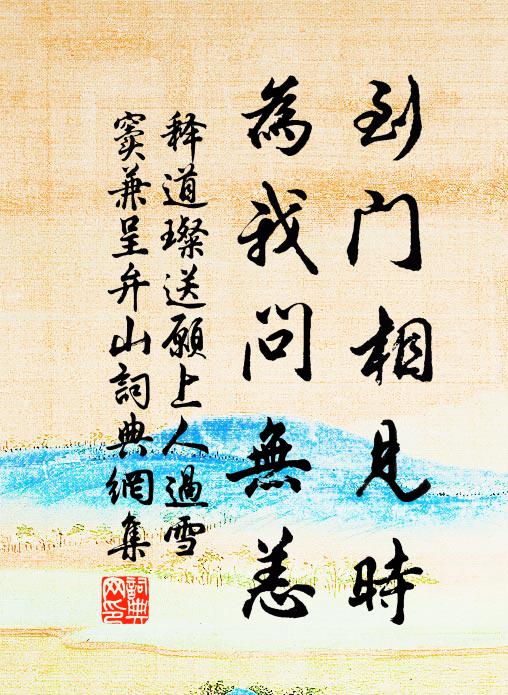 到門相見時
為我問無恙
释道璨送願上人過雪
窦兼呈弁山詞典網集
詞典網印